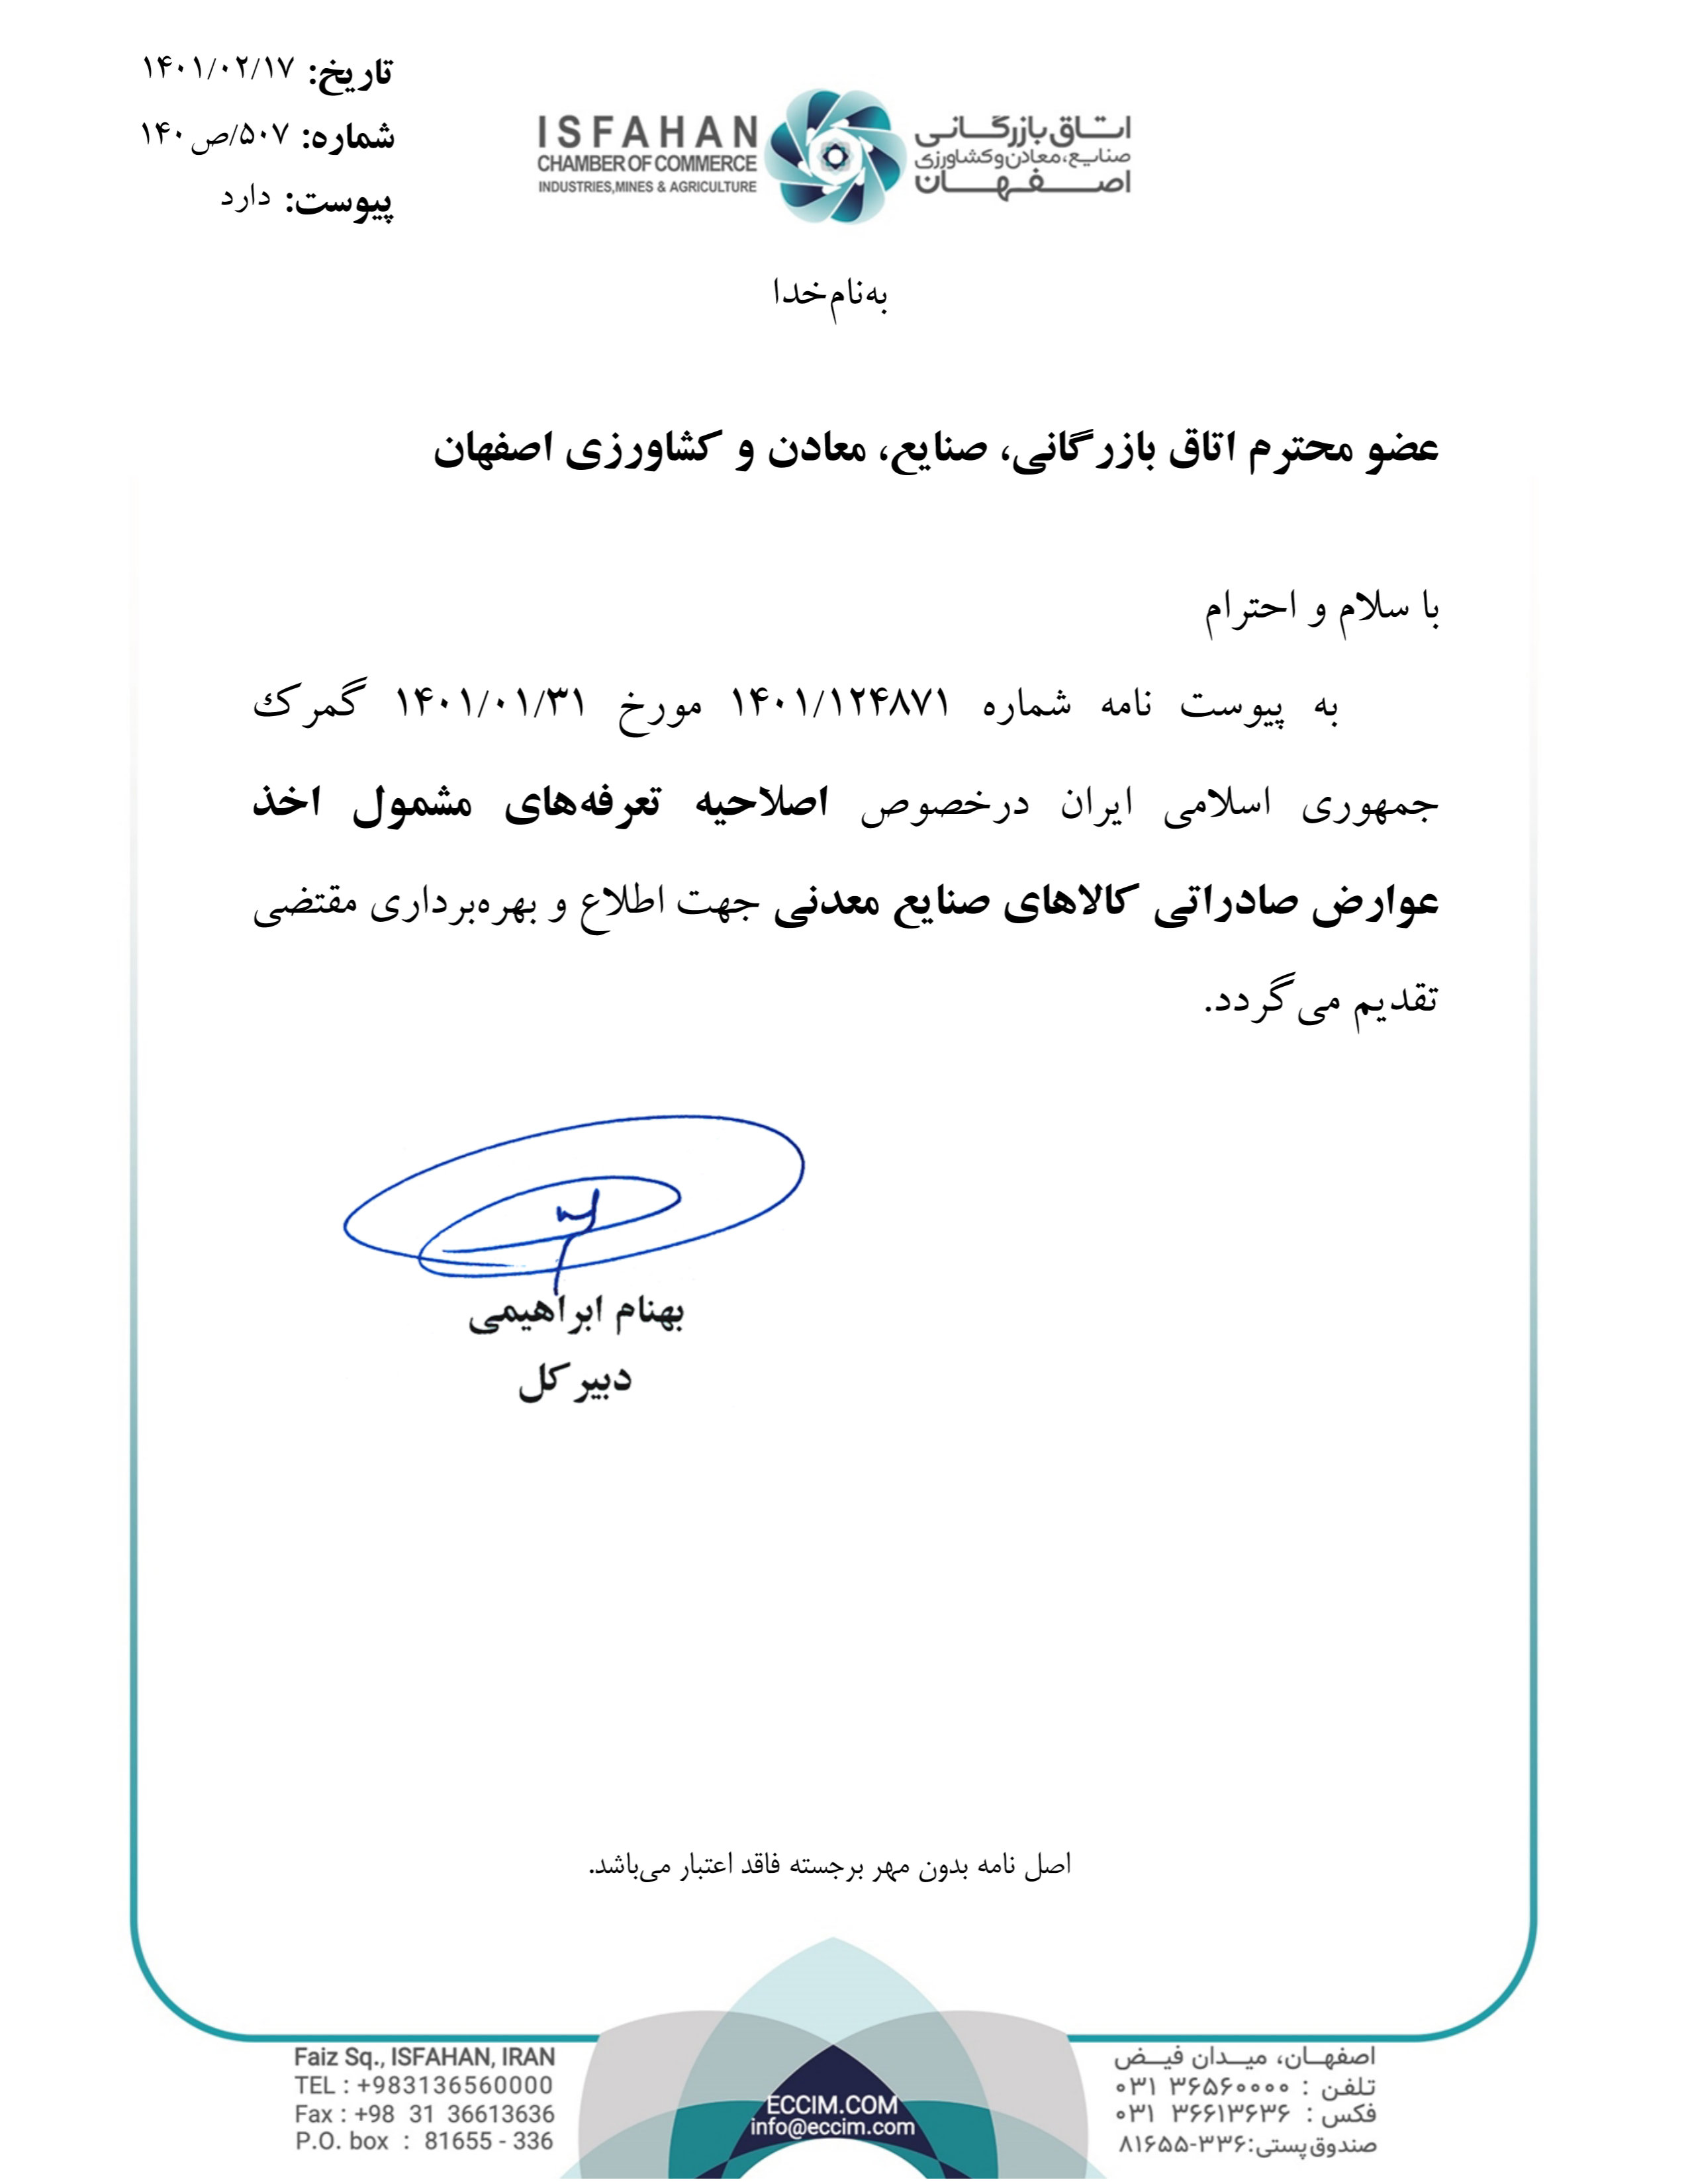 تاریخ: ۱۴۰۱/۰۲/۱۷
شماره: ۵۰۷/ص۱۴۰
پیوست: دارد
ISFAHAN
CHAMBER OF COMMERCE
INDUSTRIES,MINES & AGRICULTURE
اتـاق بازرگـانی
صنایـع،معادن‌وکشاورزی
اصـفـهـان
به‌نام‌خدا
عضو محترم اتاق بازرگانی، صنایع، معادن و کشاورزی اصفهان
با سلام و احترام
به پیوست نامه شماره ۱۴۰۱/۱۲۴۸۷۱ مورخ ۱۴۰۱/۰۱/۳۱ گمرک
جمهوری اسلامی ایران درخصوص اصلاحیه تعرفه‌های مشمول اخذ
عوارض صادراتی کالاهای صنایع معدنی جهت اطلاع و بهره‌برداری مقتضی
تقدیم می‌گردد.
بهنام ابراهیمی
دبیرکل
اصل نامه بدون مهر برجسته فاقد اعتبار می‌باشد.
Faiz Sq., ISFAHAN, IRAN
TEL : +983136560000
Fax : +98 31 36613636
P.O. box : 81655 - 336
ECCIM.COM
info@eccim.com
اصفهــان، میــدان فیــض
تـلفن : ۳۶۵۶۰۰۰۰ ۰۳۱
فکس : ۳۶۶۱۳۶۳۶ ۰۳۱
صندوق‌پستی:۳۳۶-۸۱۶۵۵